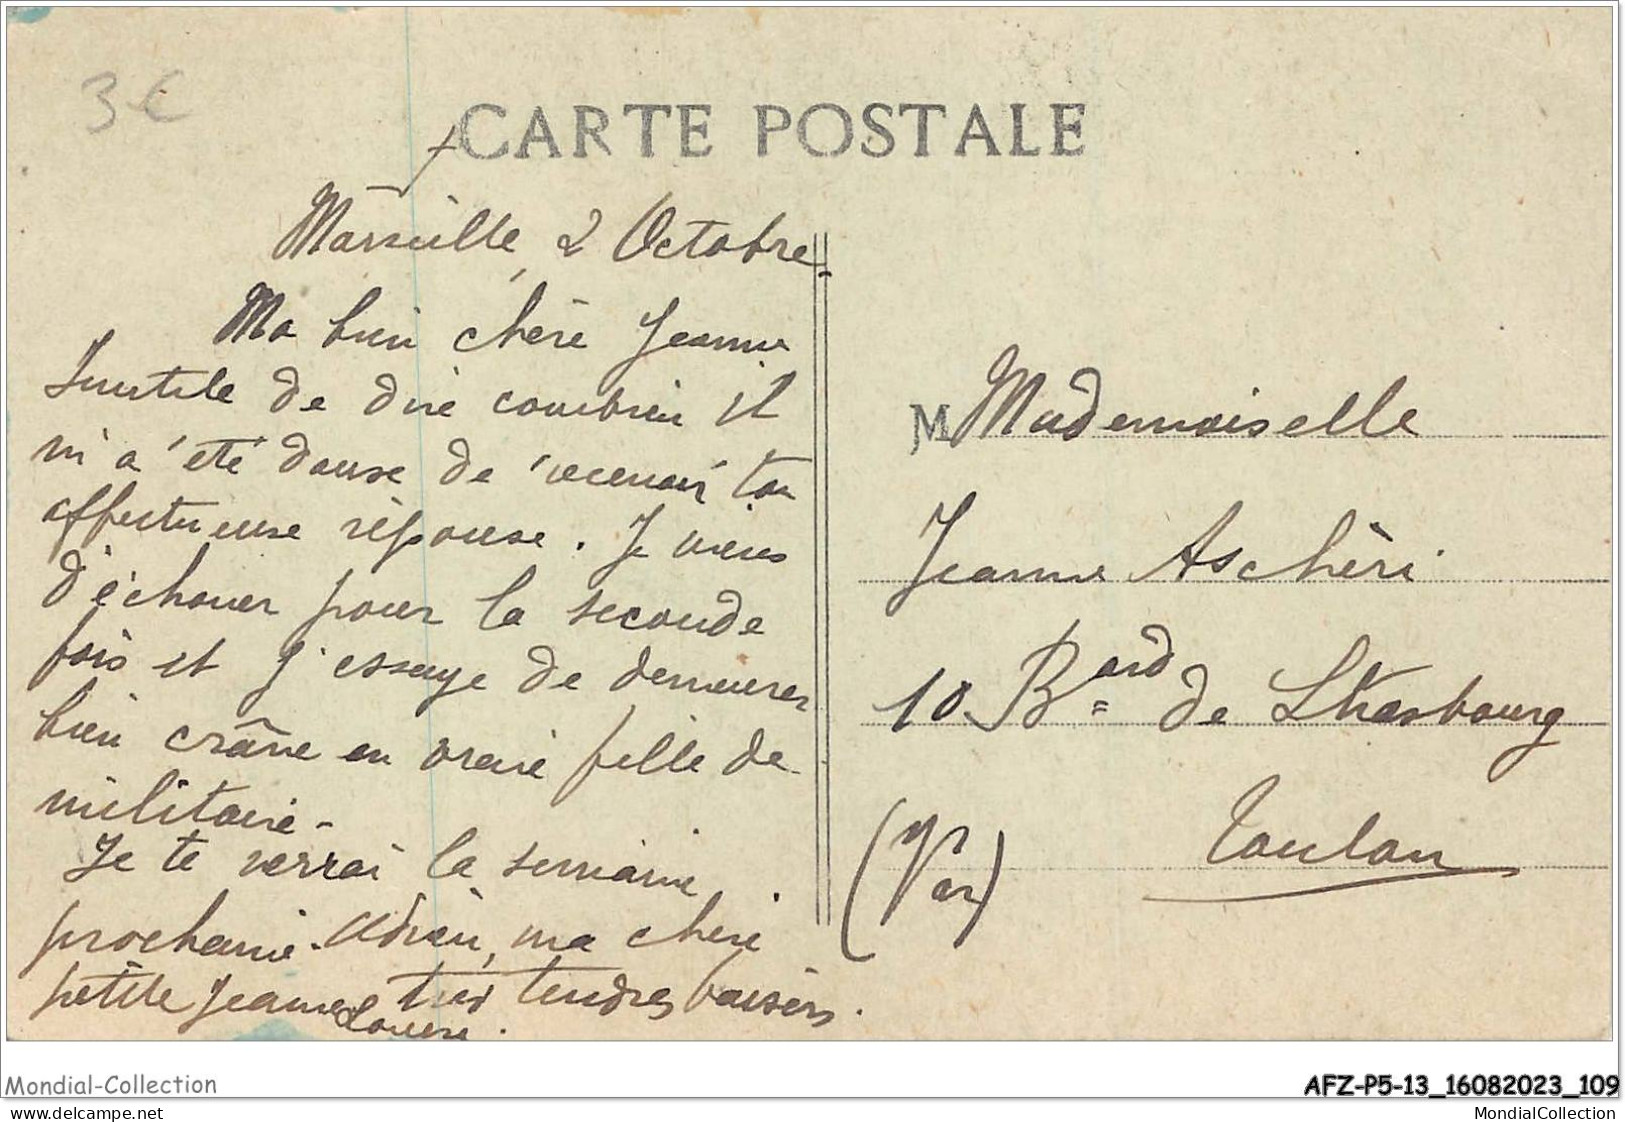 3€
CARTE POSTALE
Marseille, 2 Octobre.
Ma bien chère Jeanne
Inutile de dire combien il
m'a été douse de recevoir ta
affectueuse réponse. Je viens
d'échouer pour la seconde
fois et j'essaye de demeurer
bien crâne en vraie fille de
militaire.
Je te verrai la semaine
prochaine. Adieu, ma chère
petite Jeanne très tendres baisers.
Louise.
M Mademoiselle
Jeanne Aschèri
10 Bard de Strasbourg
Toulon
(Var)
Mondial-Collection
AFZ-P5-13_16082023_109
www.delcampe.net
MondialCollection